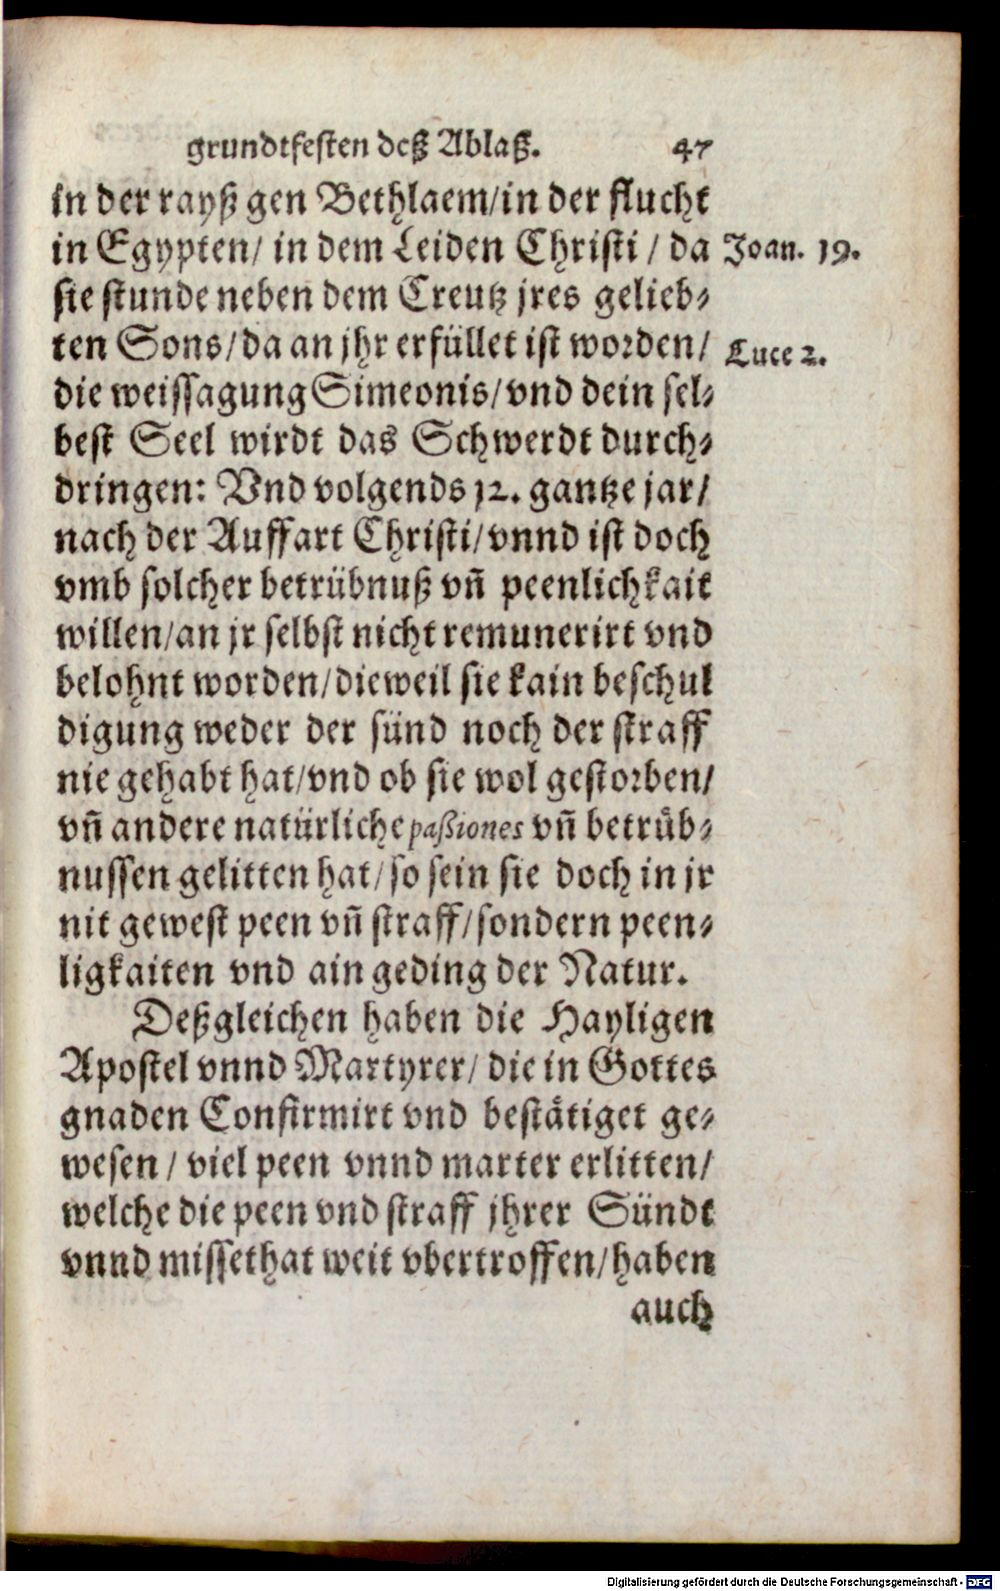 grundtfesten deß Ablaß. 47
in der rayß gen Bethlaem/in der flucht
in Egypten/ in dem Leiden Christi / da Joan. 19.
sie stunde neben dem Creutz jres gelieb⸗
ten Sons/da an jhr erfüllet ist worden/ Luce 2.
die weissagung Simeonis/vnd dein sel⸗
best Seel wirdt das Schwerdt durch⸗
dringen: Vnd volgends 12. gantze jar/
nach der Auffart Christi/vnnd ist doch
vmb solcher betrübnuß vñ peenlichkait
willen/an jr selbst nicht remunerirt vnd
belohnt worden/dieweil sie kain beschul
digung weder der sünd noch der straff
nie gehabt hat/vnd ob sie wol gestorben/
vñ andere natürliche paßiones vñ betrüb⸗
nussen gelitten hat/so sein sie doch in jr
nit gewest peen vñ straff/sondern peen⸗
ligkaiten vnd ain geding der Natur.
Deßgleichen haben die Hayligen
Apostel vnnd Martyrer/ die in Gottes
gnaden Confirmirt vnd bestätiget ge⸗
wesen / viel peen vnnd marter erlitten/
welche die peen vnd straff jhrer Sündt
vnnd missethat weit vbertroffen/haben
auch
Digitalisierung gefördert durch die Deutsche Forschungsgemeinschaft - DFG